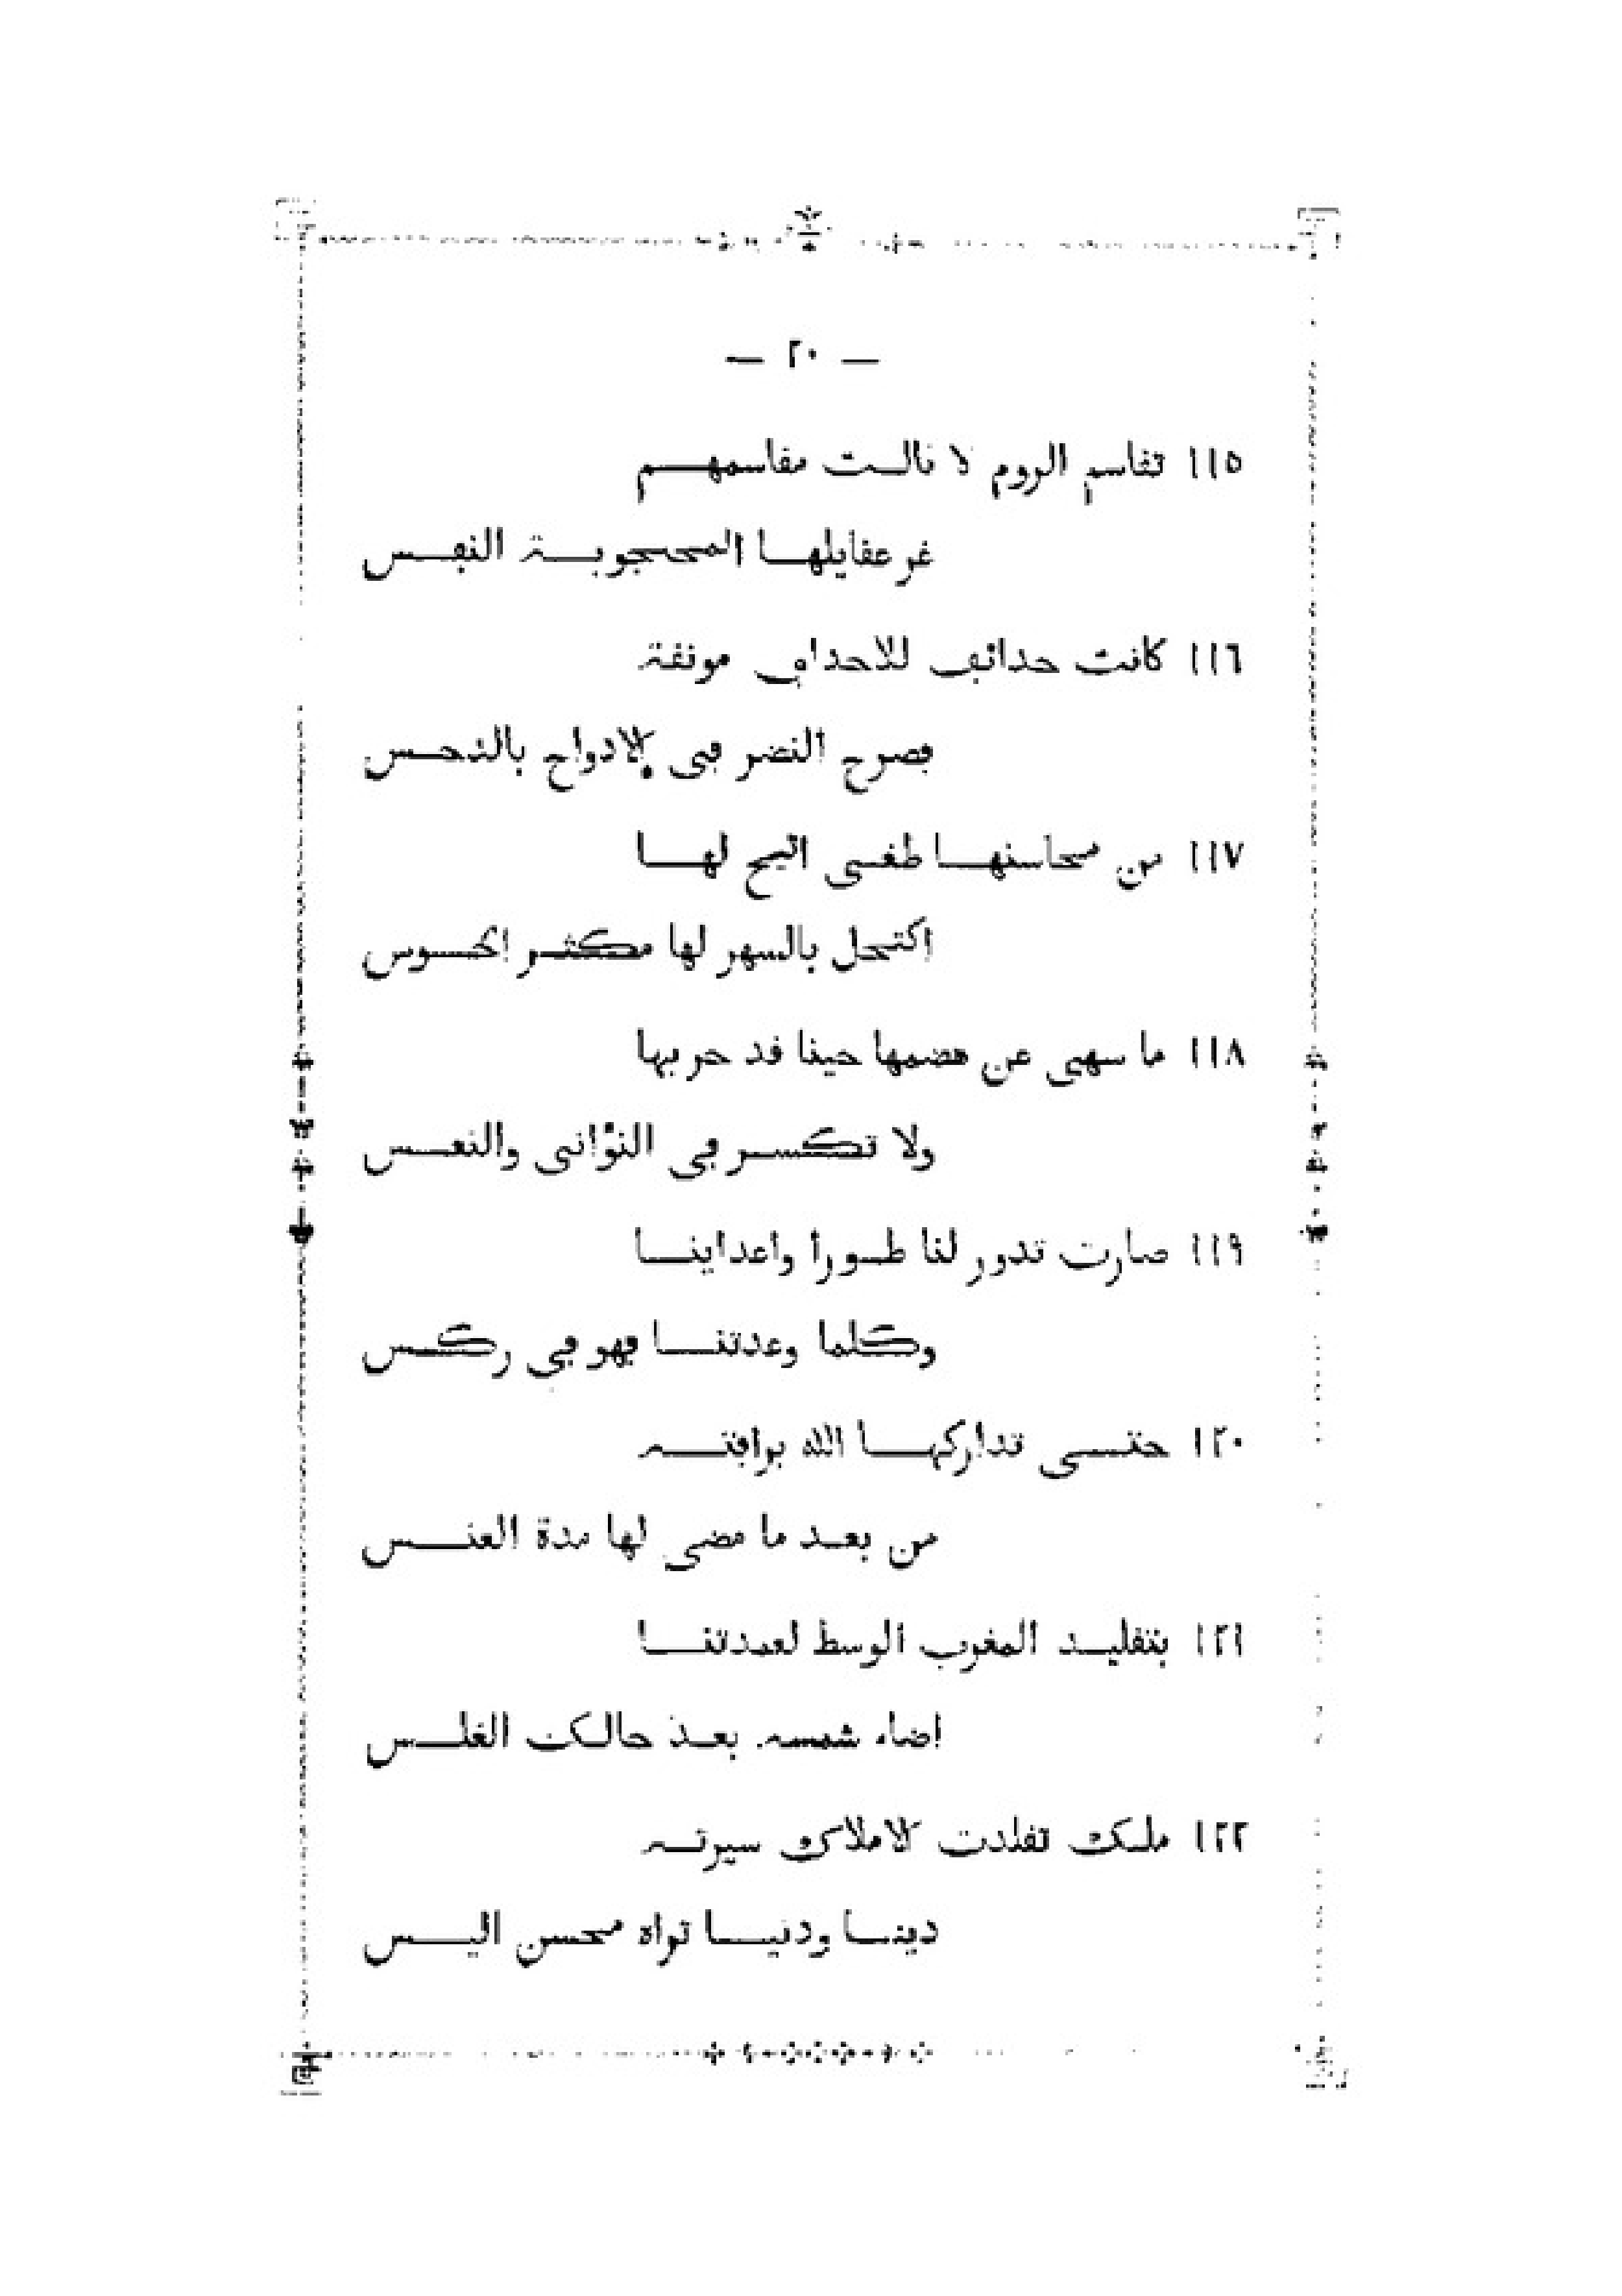 — ٢٠ —
١١٥ تفاسم الروم لا نالـت مفاسمهـــم
غر عفايلهـا المحجوبـــة النبـس
١١٦ كانت حدائق للاحداق مونفة
فصرح النضر في الادواح بالنحـس
١١٧ من محاسنهـا طغـى اليح لهـا
اكتحل بالسهر لها مكثـر الحـوس
١١٨ ما سهى عن هضمها حينا فد حربها
ولا تكسـر في التوّانى والنعـس
١١٩ صارت تدور لنا طـورا واعداينـا
وكلما وعدتنـا فهو في ركـس
١٢٠ حتـى تداركهـا الله برافتـه
من بعـد ما مضى لها مدة العنـس
١٢١ بتفليـد المغرب الوسط لعمدتنـا
اضاء شمسه بعـد حالك الغلـس
١٢٢ ملـك تفلدت الاملاك سيرتـه
دينـا ودنيـا تراه محسن اليـس